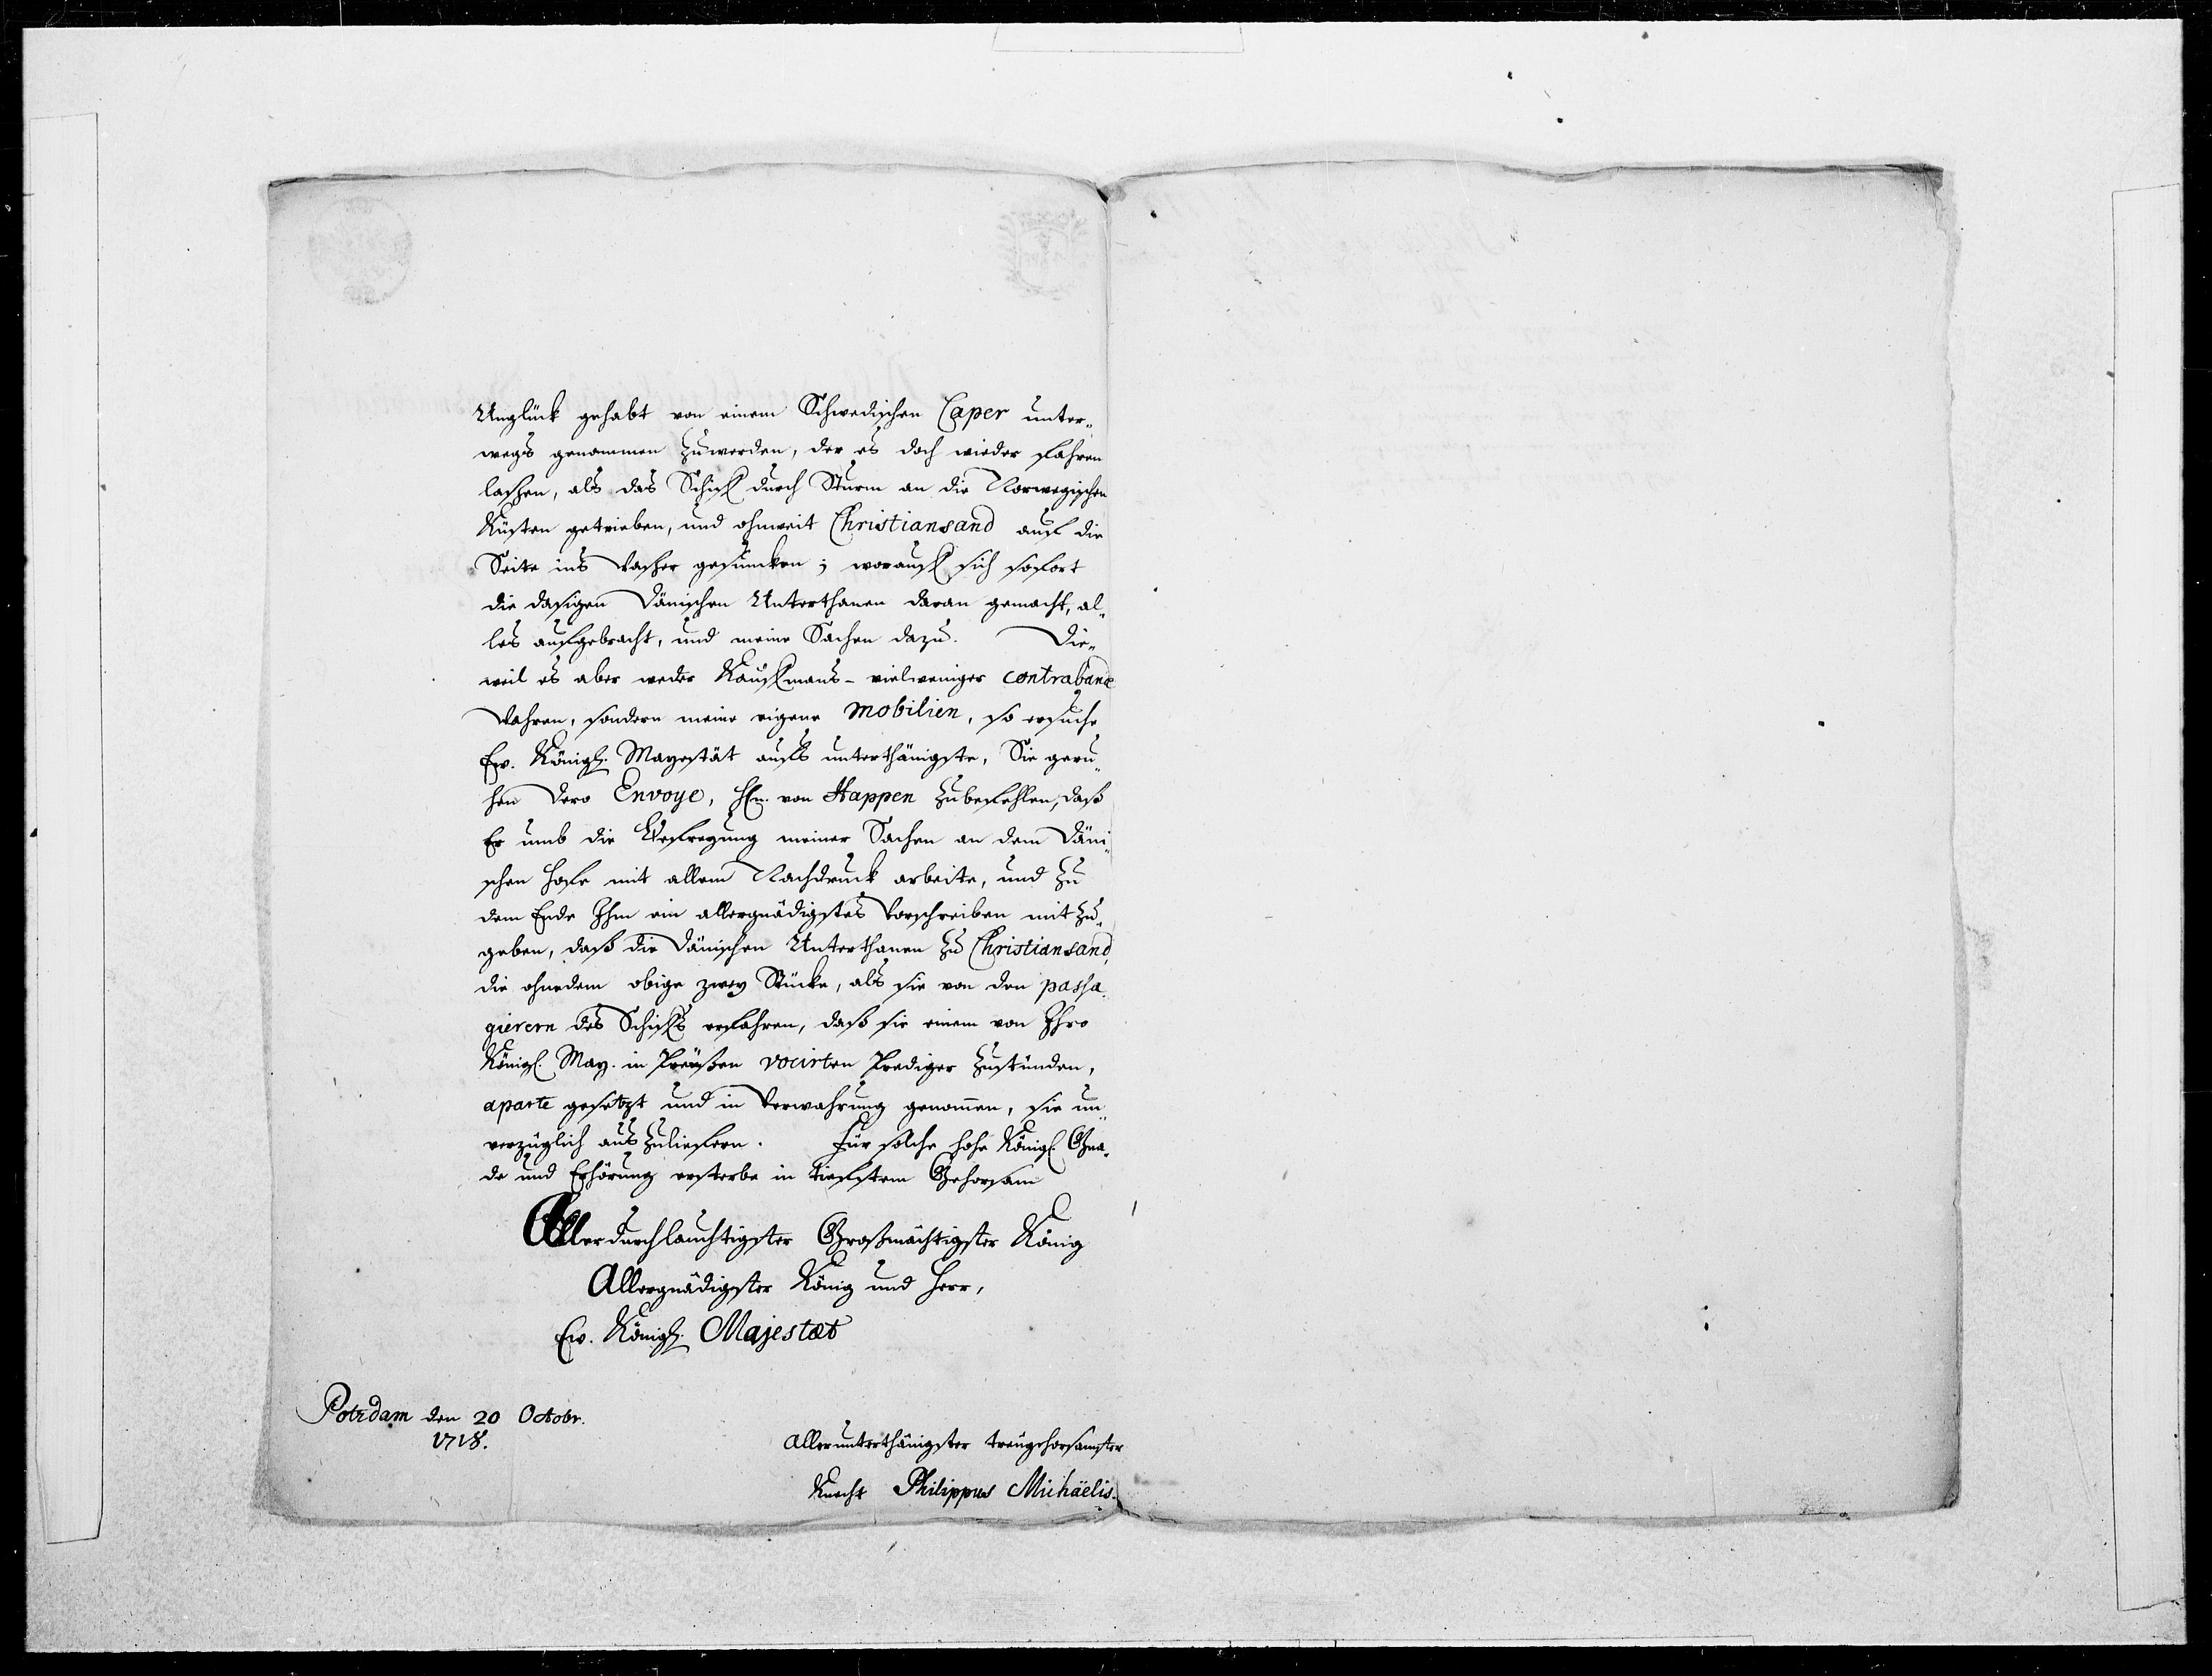 Unglück gehabt von einem Schwedischen Caper unter„
wegs genommen zu werden, der es doch wieder fahren
laßen, als das Schiff durch Sturm an die Norwegischen
Küsten getrieben, und ohnweit Christiansand auf die
Seite ins Waßer gesuncken; worauff sich sofort
die dasigen Dänischen Unterthanen daran gemacht, al„
les aufgebracht, und meine Sachen dazu. Die„
weil es aber weder Kauffmans- vielweniger contrabande
Wahren, sondern meine eigene Mobilien, so ersuche
Ew. Königl. Mayestät auffs unterthänigste, Sie geru„
hen Dero Envoye, Hn. von Happen zubefehlen, daß
Er umb die Befreyung meiner Sachen an dem Däni„
schen Hofe mit allem Nachdruck arbeite, und zu
dem Ende Ihm ein allergnädigstes Vorschreiben mit zu„
geben, daß die Dänischen Unterthanen zu Christiansand,
die ohnedem obige zwey Stücke, als sie von den passa„
gierern des Schiffs erfahren, daß sie einem von Ihro
Königl. May. in Preüßen vocirten Prediger zustünden,
aparte gesetzt und in Verwahrung genommen, sie un„
verzüglich auszuliefern. Für solche hohe Königl. Gna„
de und Erhörung ersterbe in tieffstem Gehorsam
Allerdurchlauchtigster Großmächtigster König
Allergnädigster König und Herr,
Ew. Königl. Majestæt
Potzdam den 20 Octobr.
1718.
Allerunterthänigster treugehorsamster
Knecht Philippus Michäelis.